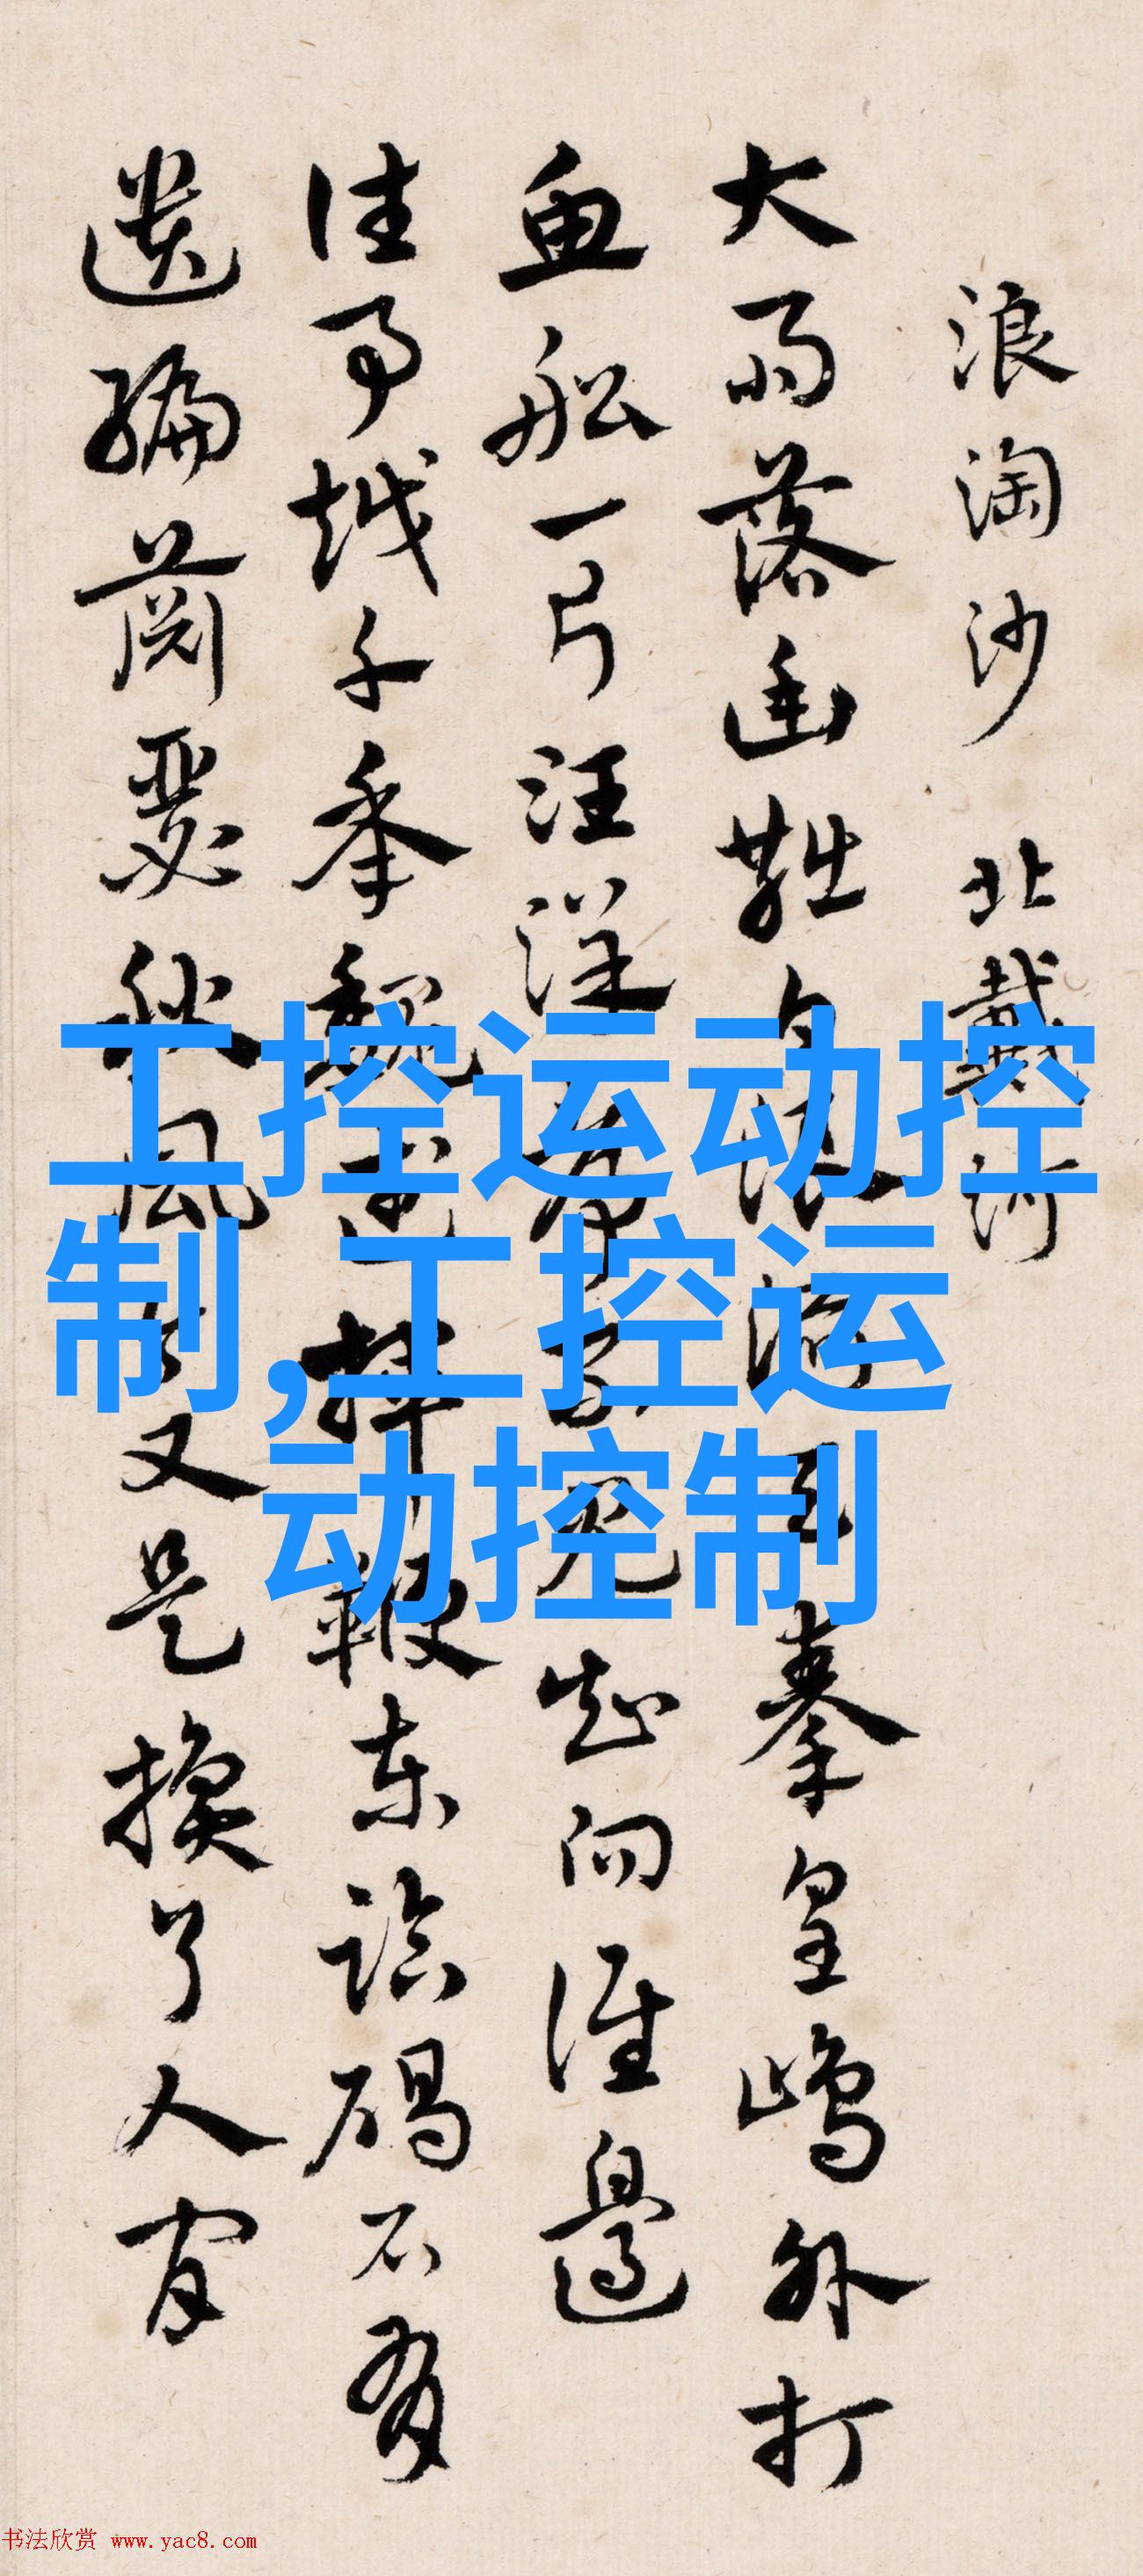 浪淘沙 北戴河
大雨落幽燕白浪滔天秦皇島外打
魚船一片汪洋都不見知向誰邊
往事越千年魏武揮鞭東臨碣石有
遺編蕭瑟秋風今又是換了人間
工控运动控
制,工控运
动控制
书法欣赏 www.yac8.com